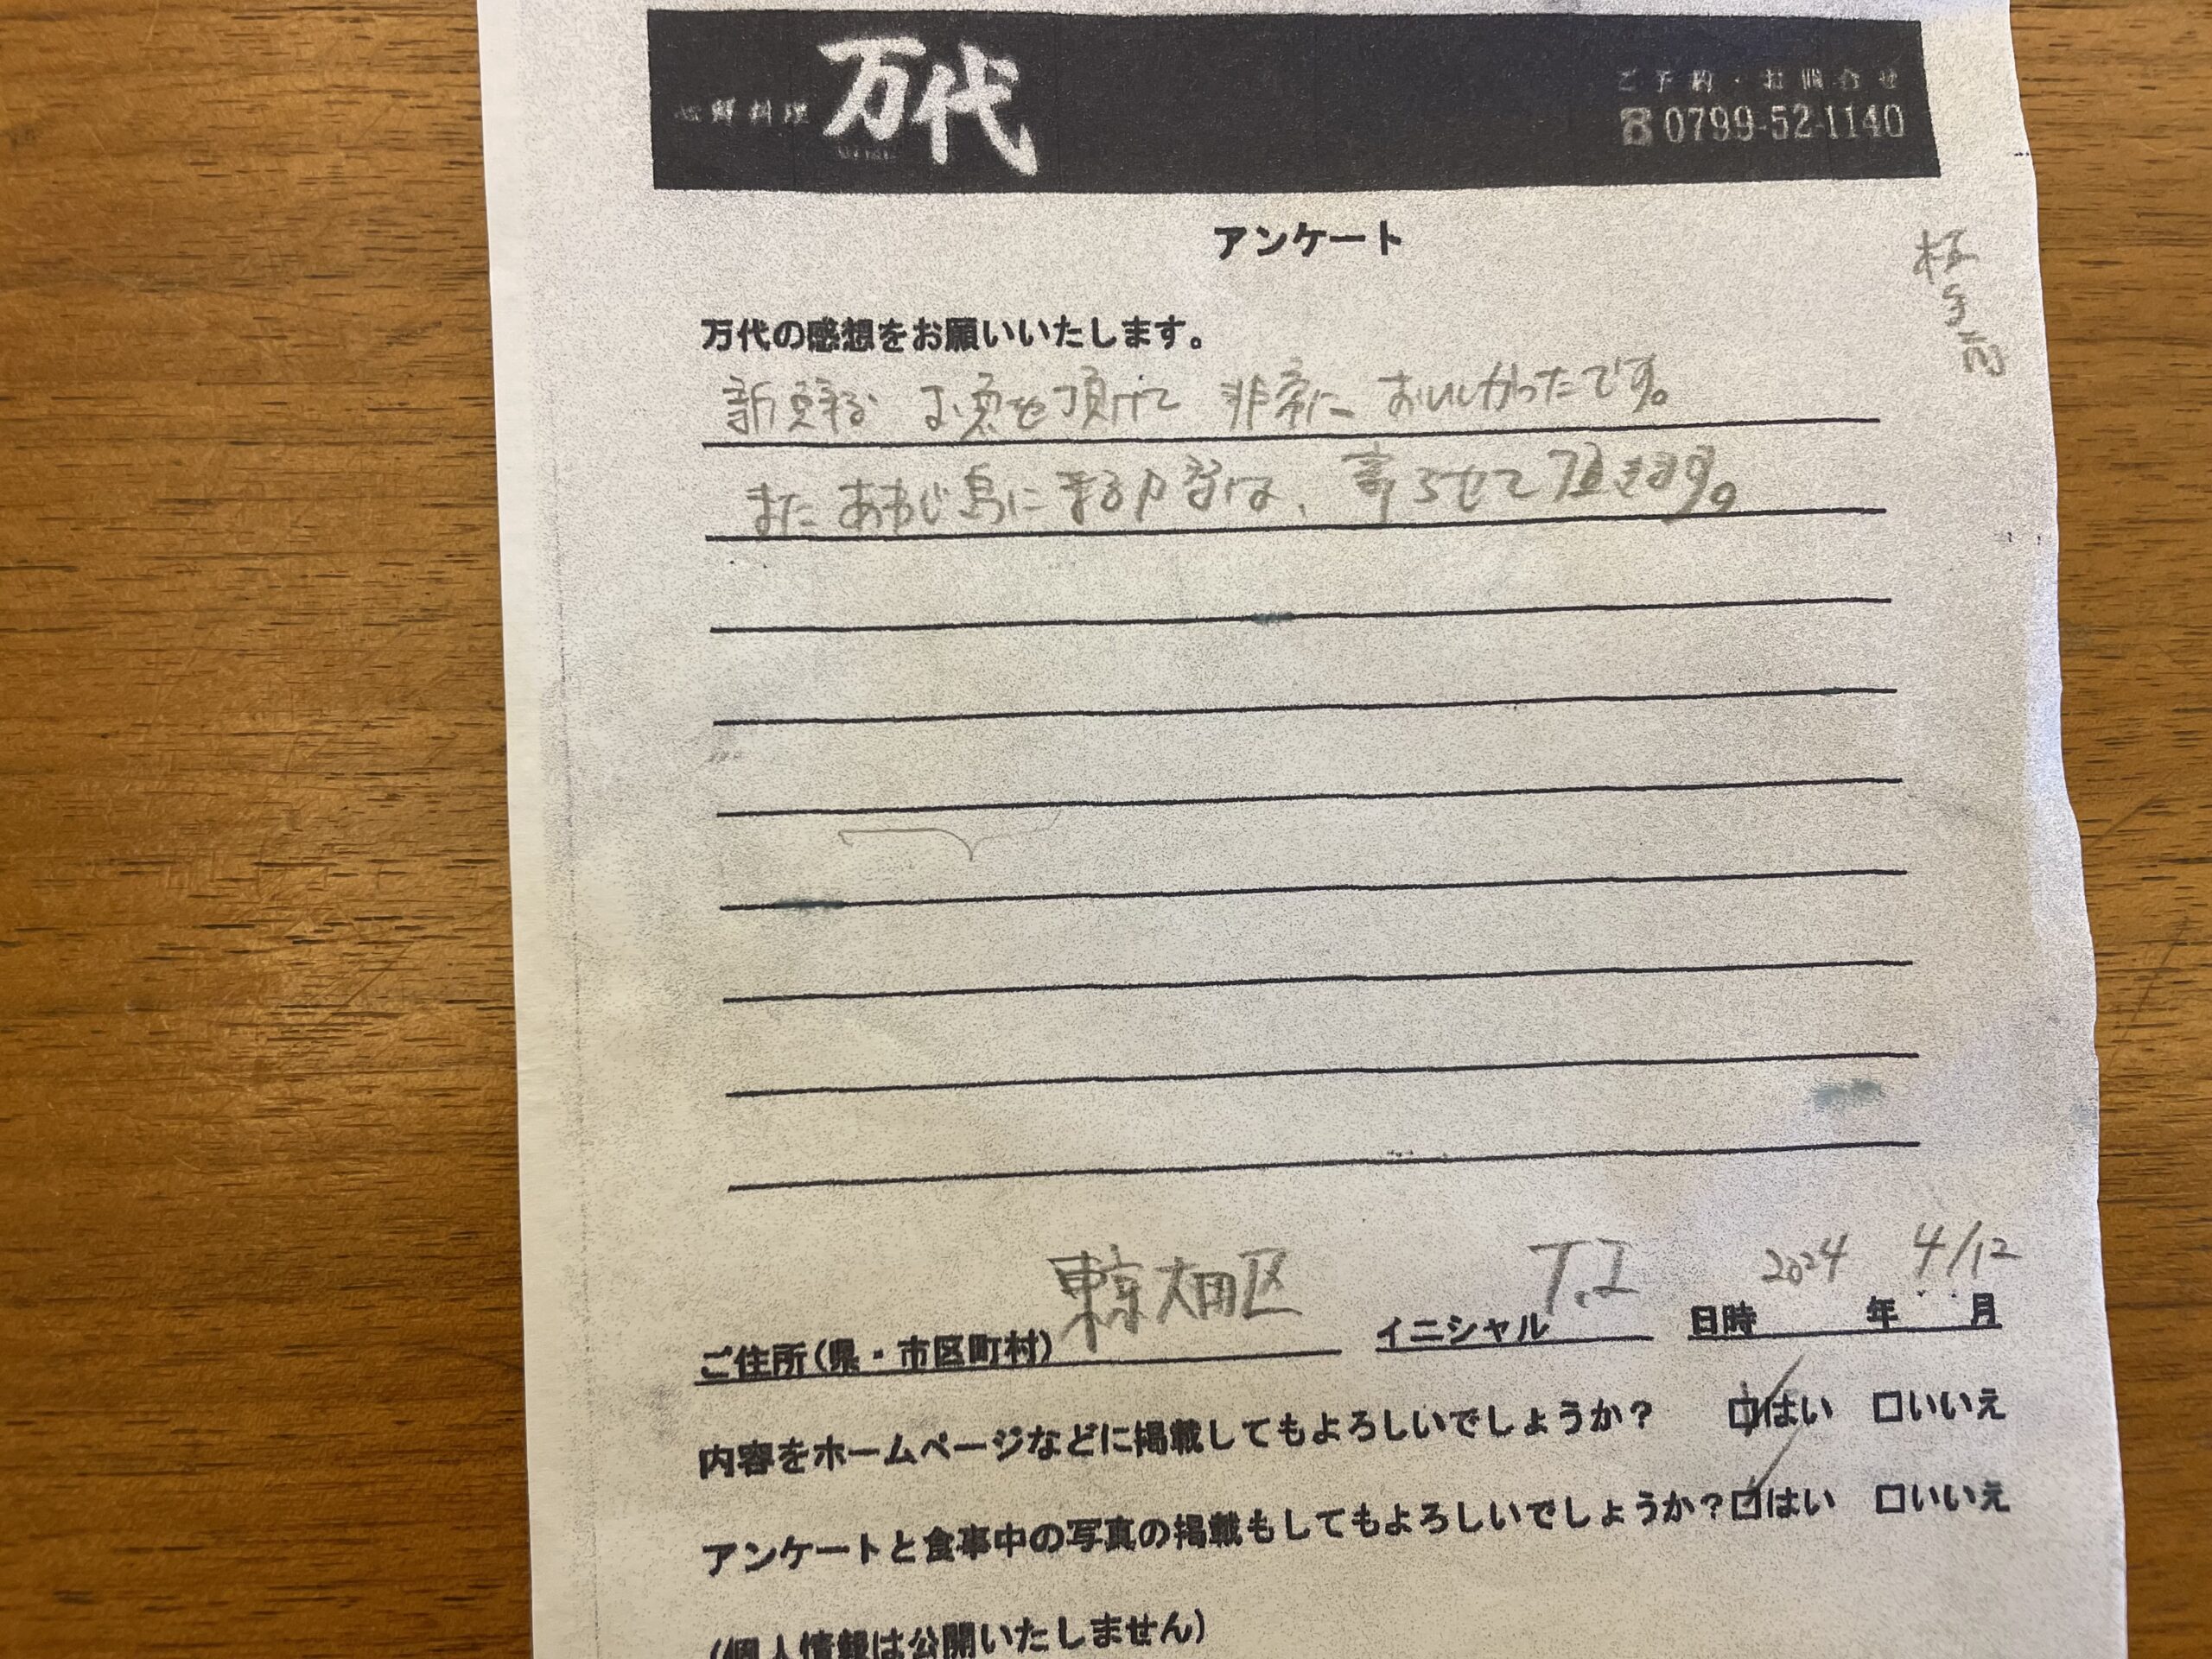 心鮮料理 万代
ご予約・お問合せ
☎0799-52-1140
アンケート
万代の感想をお願いいたします。
新鮮なお魚を頂けて 非常に おいしかったです。
また あわじ島に来る時は、寄らせて頂きます。
ご住所(県・市区町村) 東京大田区 イニシャル T.I 日時 2024 年 4/12 月
内容をホームページなどに掲載してもよろしいでしょうか? ☑はい □いいえ
アンケートと食事中の写真の掲載もしてもよろしいでしょうか?☑はい □いいえ
(個人情報は公開いたしません)